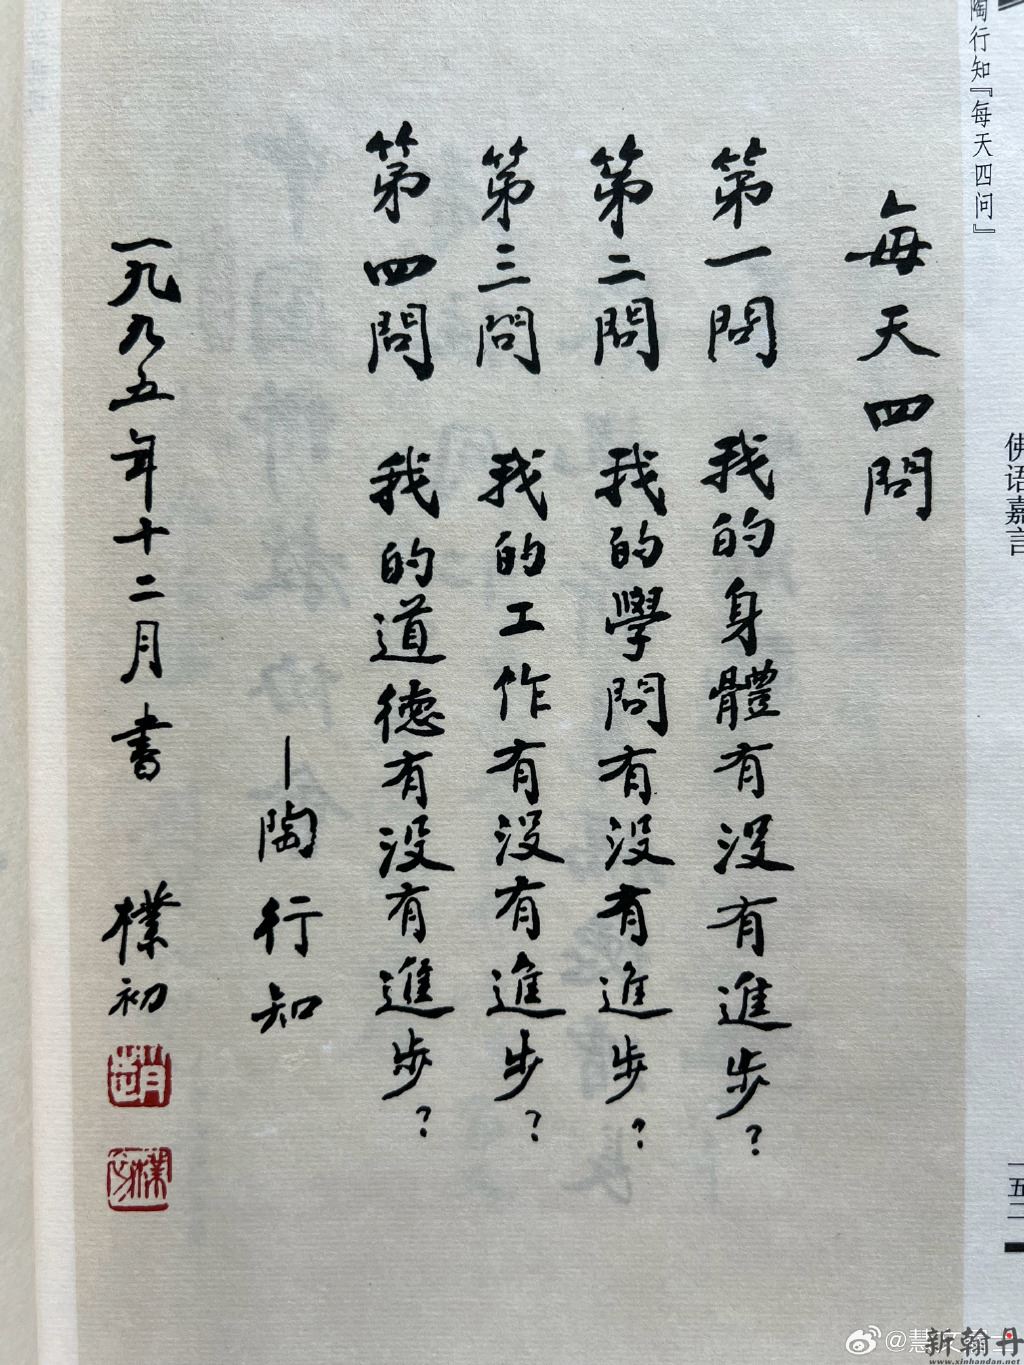 陶行知『每天四问』
佛语嘉言
一五二
每天四問
第一問 我的身體有没有進步？
第二問 我的學問有没有進步？
第三問 我的工作有没有進步？
第四問 我的道德有没有進步？
—陶行知
一九九五年十二月書 樸初
趙
樸初
新翰丹
www.xinhandan.net